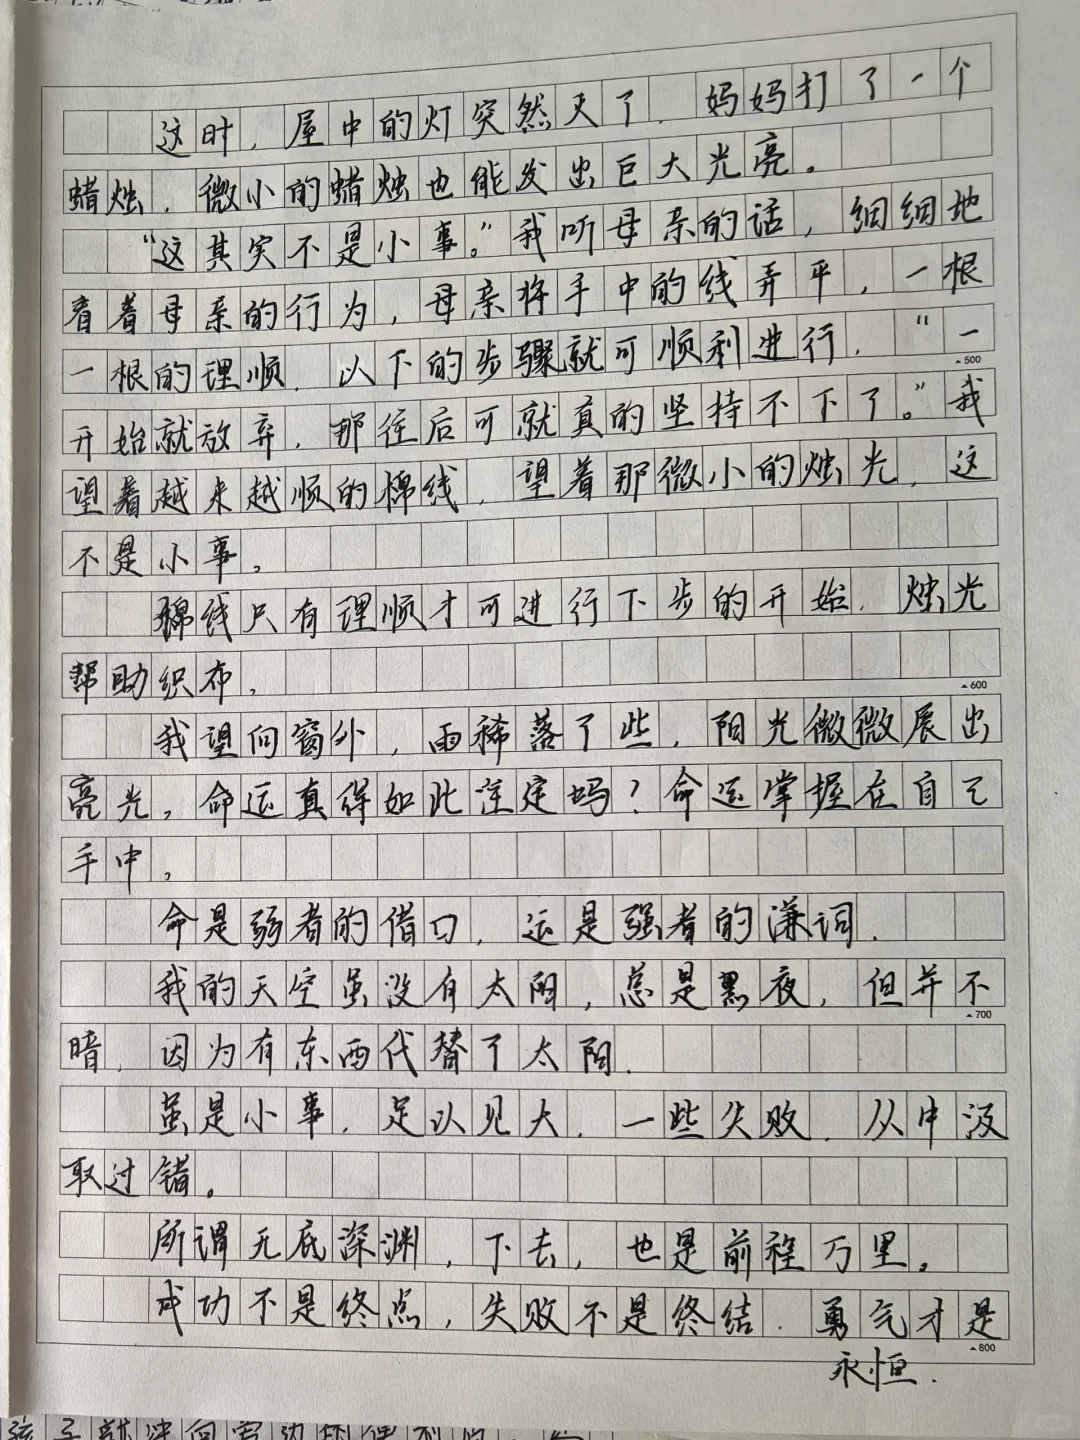 这时，屋中的灯突然灭了．妈妈打了一个
蜡烛．微小的蜡烛也能发出巨大光亮。
“这其实不是小事。”我听母亲的话，细细地
看着母亲的行为，母亲将手中的线弄平，一根
一根的理顺．以下的步骤就可顺利进行．“一
500
开始就放弃．那往后可就真的坚持不下了。”我
望着越来越顺的棉线，望着那微小的烛光，这
不是小事。
棉线只有理顺才可进行下步的开始．烛光
帮助织布。
600
我望向窗外，雨稀落了些，阳光微微展出
亮光，命运真得如此注定吗？命运掌握在自己
手中，
命是弱者的借口，运是强者的谦词．
我的天空虽没有太阳，总是黑夜，但并不
700
暗．因为有东西代替了太阳．
虽是小事．足以见大．一些失败．从中汲
取过错。
所谓无底深渊，下去，也是前程万里。
成功不是终点，失败不是终结．勇气才是
800
永恒．